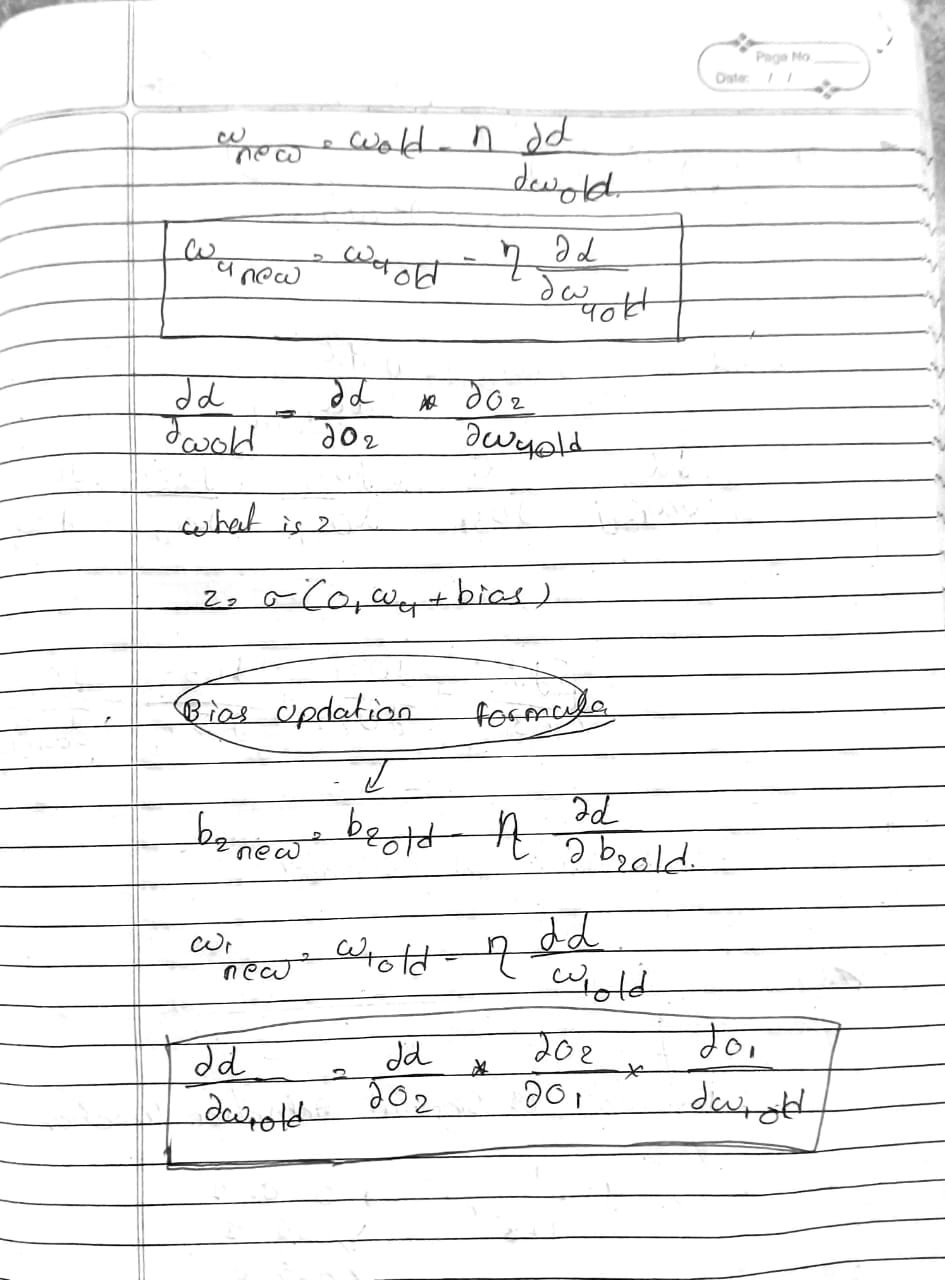 Page No.
Date: / /
w new = wold - η ∂d / ∂wold.
w4 new = w4 old - η ∂d / ∂w4old
∂d / ∂wold = ∂d / ∂O2 * ∂O2 / ∂w4old
what is z
z = σ(O1 w4 + bias)
Bias updation formula
↓
b2 new = b2old - η ∂d / ∂b2old.
w1 new = w1old - η ∂d / w1old
∂d / ∂w1old = ∂d / ∂O2 * ∂O2 / ∂O1 × ∂O1 / ∂w1old